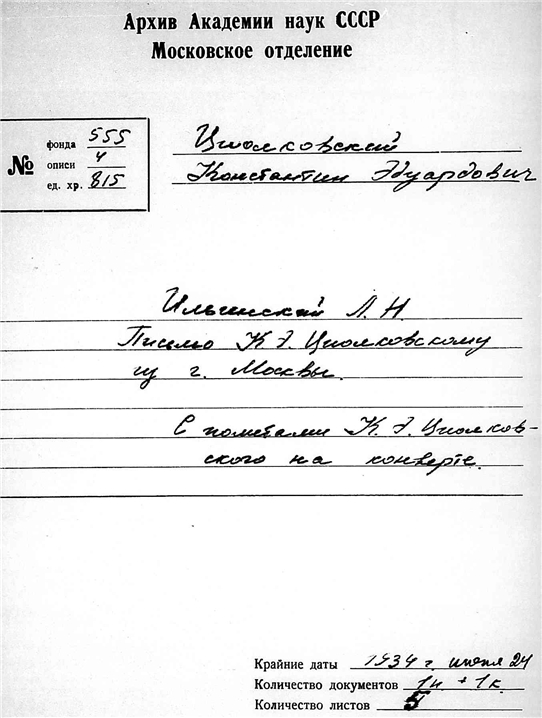 Архив Академии наук СССР
Московское отделение
№
фонда 555
описи 4
ед. хр. 815
Циолковский
Константин Эдуардович
Ильинский Л. Н.
Письмо К. Э. Циолковскому
из г. Москвы.
С пометами К. Э. Циолков-
ского на конверте.
Крайние даты 1934 г.       24
Количество документов 1п. + 1к.
Количество листов 5